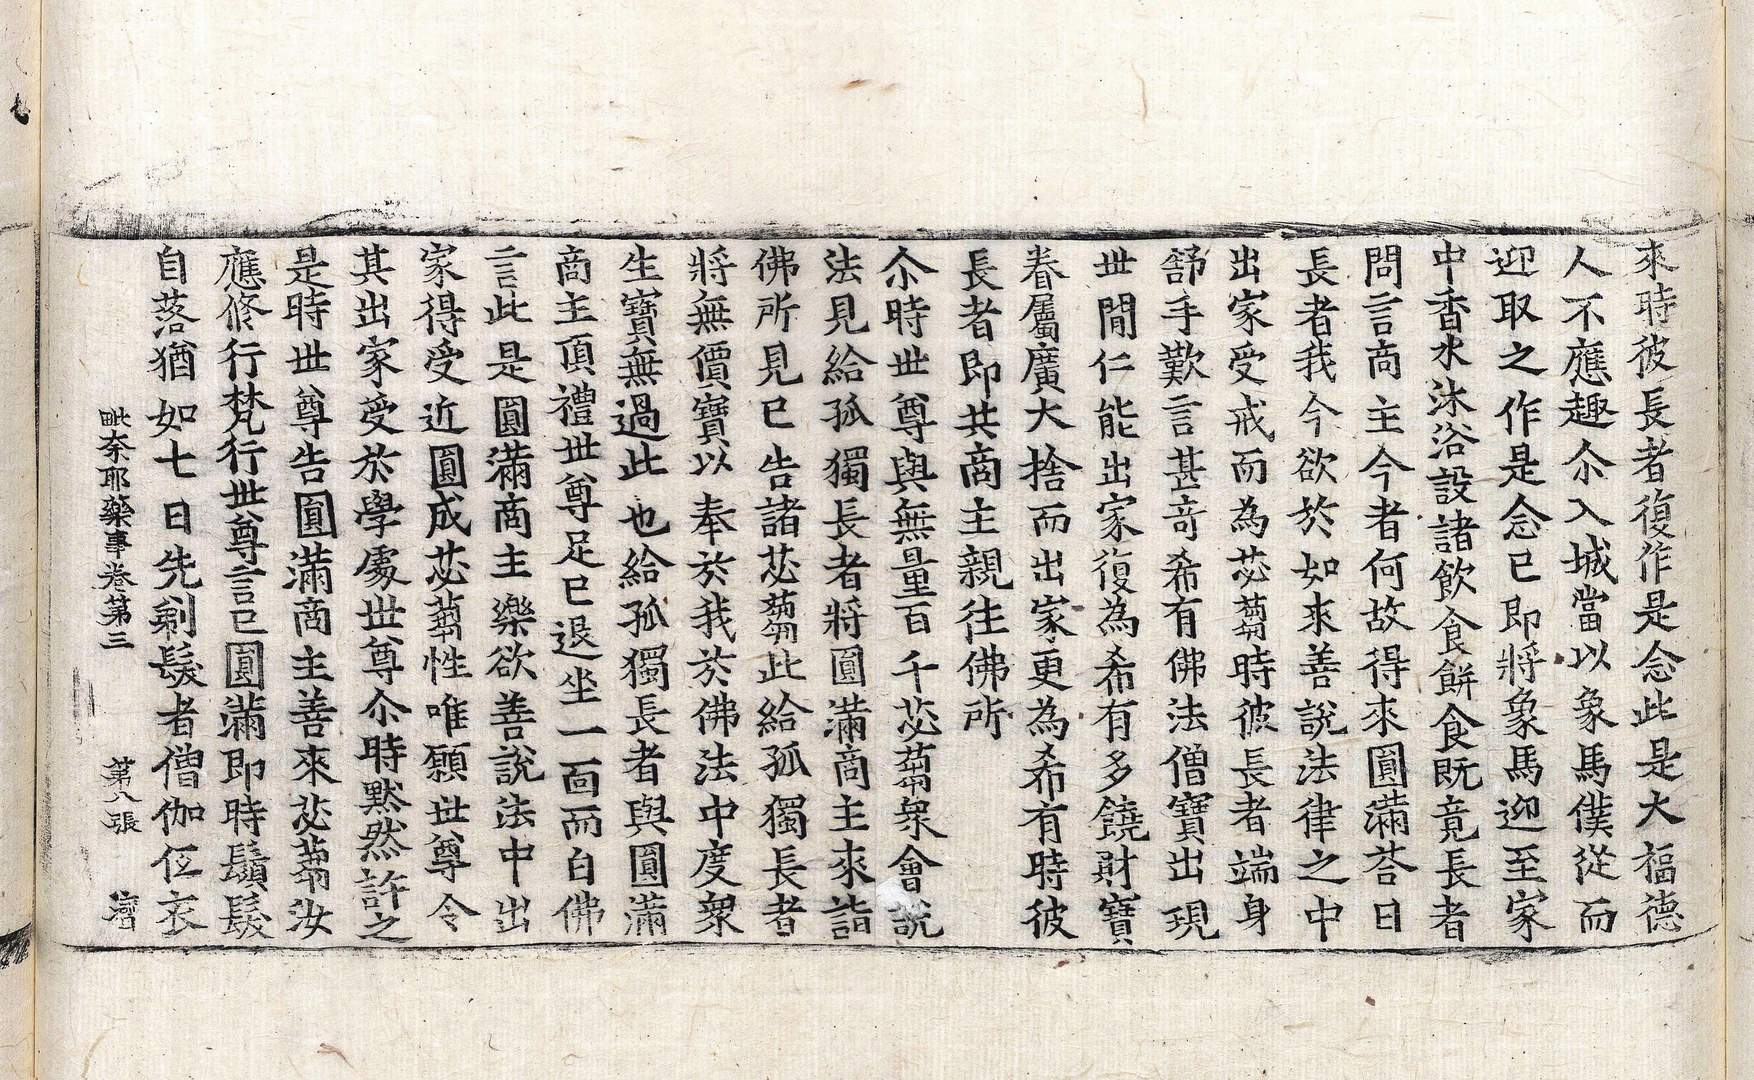 來時彼長者復作是念此是大福德
人不應趣尒入城當以象馬僕從而
迎取之作是念已即將象馬迎至家
中香水沐浴設諸飲食餅食既竟長者
問言商主今者何故得來圓滿荅曰
長者我今欲於如來善說法律之中
出家受戒而為苾蒭時彼長者端身
舒手歎言甚奇希有佛法僧寶出現
世間仁能出家復為希有多饒財寶
眷屬廣大捨而出家更為希有時彼
長者即共商主親往佛所
尒時世尊與無量百千苾蒭衆會說
法見給孤獨長者將圓滿商主來詣
佛所見已告諸苾蒭此給孤獨長者
將無價寶以奉於我於佛法中度衆
生寶無過此也給孤獨長者與圓滿
商主頂禮世尊足已退坐一面而白佛
言此是圓滿商主樂欲善說法中出
家得受近圓成苾蒭性唯願世尊令
其出家受於學處世尊尒時黙然許之
是時世尊告圓滿商主善來苾蒭汝
應修行梵行世尊言已圓滿即時鬚髮
自落猶如七日先剃髮者僧伽伍衣
毗奈耶藥事卷第三　第八張　濟